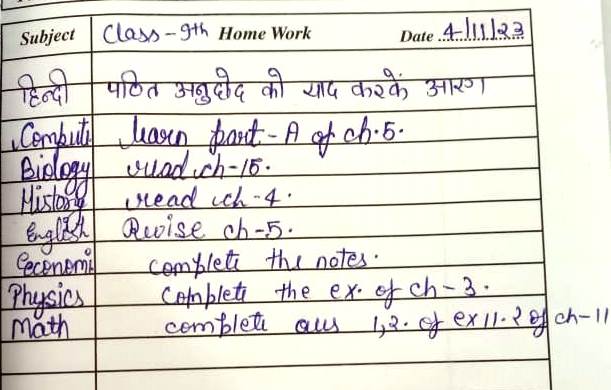 Subject Class-9th Home Work Date 4/11/23
हिन्दी पठित अनुछेद को याद करकें आएग।
Computi learn part-A of ch.5.
Biology read ch-15.
History read ch-4.
English Revise ch-5.
Economi complete the notes.
Physics Complete the ex. of ch-3.
Math complete aus 1,2. of ex 11.2 of ch-11